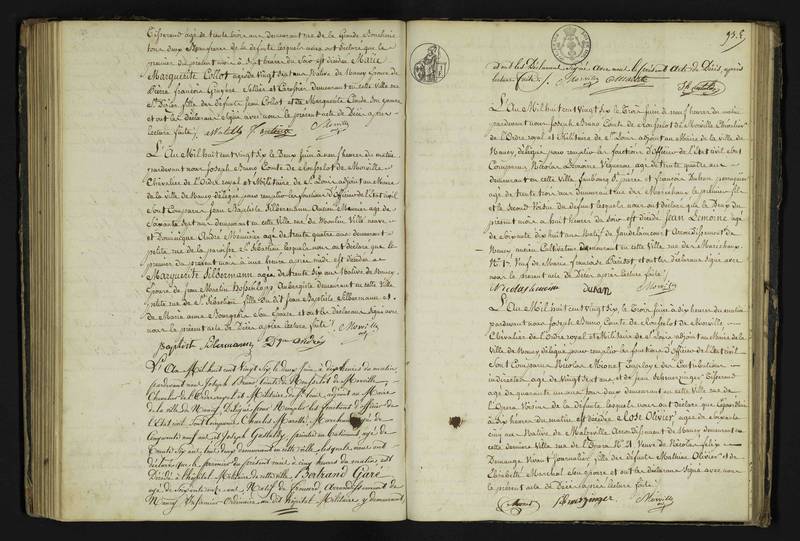 Tisserand agé de trente trois ans demeurant rue de la Grande Boucherie
tous deux étrangers de la défunte lesquels nous ont déclaré que le
premier du présent mois à huit heures du soir est décédée Marie
Marguerite Collot agée de vingt sept ans Native de Nancy Epouse de
Pierre François Guyon Sellier et Carossier demeurant en cette ville rue
St Dizier fille des défunts Jean Collot et de Marguerite Conte son epouse
et ont les déclarans signé avec nous le présent acte de Décès après
lecture faite
Morville
L'An Mil huit cent vingt six le Deux Juin à neuf heures du matin
pardevant nous Joseph Bruno Comte de Ronfselot de Morville
Chevalier de l'Ordre royal et Militaire de St Louis adjoint au Maire
de la Ville de Nancy délégué pour remplir les fonctions d'Officier de l'Etat civil
sont Comparus Jean Baptiste Silbermann Ancien Mercier agé de
soixante sept ans demeurant en cette Ville rue du Moulin Ville neuve
et Dominique André Menuisier agé de trente quatre ans demeurant
petite rue de la paroisse St Sébastien lesquels nous ont déclaré que le
premier du présent mois à une heure après midi est décédée
Marguerite Silbermann agée de trente six ans Native de Nancy
Epouse de Jean Martin Aubergiste demeurant en cette Ville
petite rue de St Sébastien fille du dit Jean Baptiste Silbermann et
de Marie anne Bourgeois son Epouse et ont les déclarans signé avec
nous le présent acte de Décès après lecture faite
Morville
Baptiste Silbermann Dque andré
L'An Mil huit cent vingt six le deux Juin à dix heures du matin
pardevant nous Joseph Bruno Comte de Ronfselot de Morville
Chevalier de l'Ordre royal et Militaire de St Louis, adjoint au Maire
de la ville de Nancy, Délégué pour remplir les fonctions d'officier de
l'Etat civil sont comparus Charles Marchand agé de
Cinquante neuf ans et Joseph peintre en batimens agé de
trente six ans, tous deux demeurant en cette ville, lesquels nous ont
déclaré que le premier du présent mois à cinq heures du matin est
Décédé à l'hopital Militaire de cette ville Bertrand Garé
agé de soixante ans Natif de arrondissement de
Nancy Infirmier ordinaire au dit hopital Militaire y demeurant,
95.
et ont les Déclarans signé Avec nous le présent Acte de Décès, après
lecture faite
Morville
L'An Mil huit cent vingt six le Trois Juin à neuf heures du matin
pardevant nous Joseph Bruno Comte de Ronfselot de Morville Chevalier
de l'Ordre royal et Militaire de St Louis adjoint au Maire de la ville de
Nancy délégué pour remplir les fonctions d'Officier de l'Etat civil sont
Comparus Nicolas Lemoine Vigneron agé de trente quatre ans
demeurant en cette Ville faubourg St pierre et François Duran
agé de trente trois ans demeurant rue des Maréchaux le premier fils
et le second Voisin du défunt lesquels nous ont déclaré que le Deux du
présent mois à huit heures du soir est décédé Jean Lemoine agé
de soixante dix huit ans Natif de Arrondissement de
Nancy, ancien Cultivateur demeurant en cette Ville rue des Maréchaux
No 17 Veuf de Marie et ont les déclarans signé avec
nous le présent acte de Décès après lecture faite
Nicolas Lemoine Duran Morville
L'An Mil huit cent vingt six, le Trois Juin à dix heures du matin
pardevant nous Joseph Bruno Comte de Ronfselot de Morville
Chevalier de l'Ordre royal et Militaire de St Louis adjoint au Maire de la
Ville de Nancy délégué pour remplir les fonctions d'Officier de l'Etat civil
sont Comparus Nicolas Mionet Employé des Contributions
indirectes agé de vingt sept ans et de Jean Schwerzinger Tisserand
agé de quarante un ans tous deux demeurant en cette Ville rue de
l'Opera Voisins de la défunte lesquels nous ont déclaré que
à dix heures du matin est décédée Rose Olivier agée de soixante
cinq ans Native de Malzeville Arrondissement de Nancy demeurant en
cette dernière Ville rue de l'Opera No Veuve de Nicolas felix
Demange Vivant Journalier fille des défunts Mathieu Olivier et de
Elisabeth Marchal son epouse et ont les déclarans signé avec nous
le présent acte de Décès après lecture faite
Mionet Schwerzinger Morville